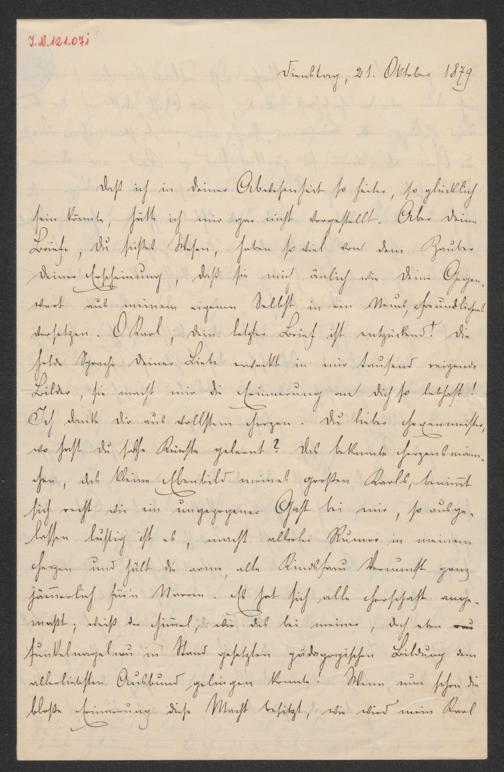 I.N.121.071
Dienstag, 21. Oktober 1879
Daß ich in deiner Abwesenheit so heiter, so glücklich
sein könnte, hätte ich mir gar nicht vorgestellt. Aber deine
Briefe, du süßes Wesen, haben so viel von dem Zauber
deiner Erscheinung, daß sie mich änlich wie deine Gegen-
wart aus meinem eigenen Selbst in ein Neues, Freundliches
versetzen. O Karl, dein letzter Brief ist entzückend! Die
holde Sprache deiner Liebe erweckt in mir tausend reizende
Bilder, sie macht mir die Erinnerung an dich so lebhaft!
Ich danke dir aus vollstem Herzen. Du lieber Hexenmeister,
wo hast du solche Künste gelernt? Das bekannte Herzensmänn-
chen, das kleine Ebenbild meines großen Karls, benimt
sich recht wie ein ungezogener Gast bei mir, so ausge-
lassen lustig ist es, macht allerlei Rumor in meinem
Herzen und hält die arme, alte Kindsfrau Vernunft ganz
jämerlich für'n Narren. Es hat sich alle Herschaft ange-
maßt; weiß der Himel, wie das bei meiner, doch eben
funkelnagelneu in Stand gesetzten pädagogischen Bildung dem
allerliebsten Ausbund gelingen konnte! Wenn nun schon die
bloße Erinnerung diese Macht besitzt, wie wird mein Karl